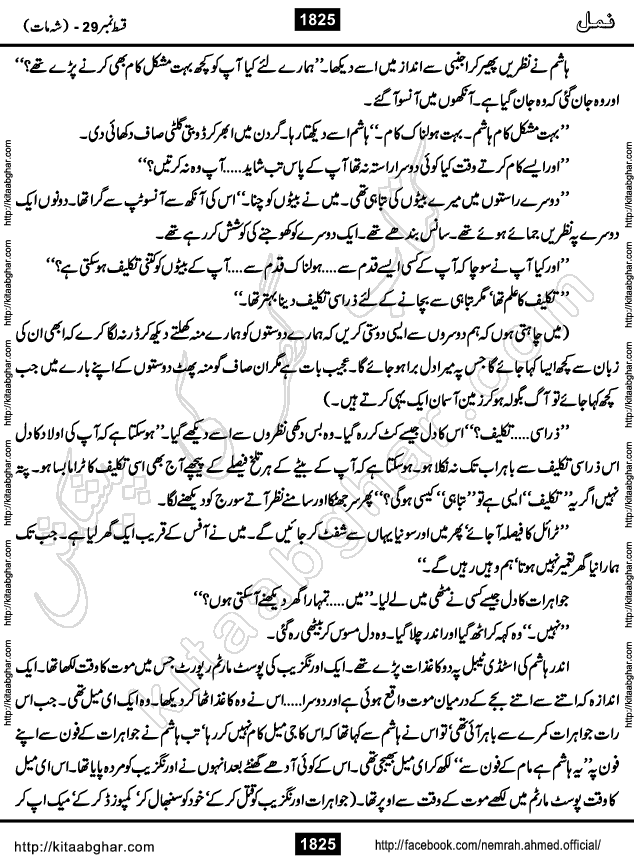 نمل
1825
قسط نمبر 29 - (شہ مات)
ہاشم نے نظریں پھیر کر اجنبی سے انداز میں اسے دیکھا۔ ”ہمارے لئے کیا آپ کو کچھ بہت مشکل کام بھی کرنے پڑے تھے؟“
اور وہ جان گئی کہ وہ جان گیا ہے۔ آنکھوں میں آنسو آ گئے۔
”بہت مشکل کام ہاشم۔ بہت ہولناک کام۔“ ہاشم اسے دیکھتا رہا۔ گردن میں ابھر کر ڈوبتی گلٹی صاف دکھائی دی۔
”اور ایسے کام کرتے وقت کیا کوئی دوسرا راستہ نہ تھا آپ کے پاس تب شاید.....آپ وہ نہ کرتیں؟“
”دوسرے راستوں میں میرے بیٹوں کی تباہی تھی۔ میں نے بیٹوں کو چنا۔“ اس کی آنکھ سے آنسو ٹپ سے گرا تھا۔ دونوں ایک
دوسرے پہ نظریں جمائے ہوئے تھے۔ سانس بندھے تھے۔ ایک دوسرے کو کھوجنے کی کوشش کر رہے تھے۔
”اور کیا آپ نے سوچا کہ آپ کے کسی ایسے قدم سے....ہولناک قدم سے....آپ کے بیٹوں کو کتنی تکلیف ہو سکتی ہے؟“
”تکلیف کا علم تھا‘ مگر تباہی سے بچانے کے لئے ذرا سی تکلیف دینا بہتر تھا۔“
(میں چاہتی ہوں کہ ہم دوسروں سے ایسی دوستی کریں کہ ہمارے دوستوں کو ہمارے منہ کھلتے دیکھ کر ڈر نہ لگا کرے کہ ابھی ان کی
زبان سے کچھ ایسا کہا جائے گا جس پہ میرا دل برا ہو جائے گا۔ عجیب بات ہے مگر ان صاف گو منہ پھٹ دوستوں کے اپنے بارے میں جب
کچھ کہا جائے تو آگ بگولہ ہو کر زمین آسمان ایک یہی کرتے ہیں۔)
”ذرا سی.....تکلیف؟“ اس کا دل جیسے کٹ کر رہ گیا۔ وہ بس دکھی نظروں سے اسے دیکھے گیا۔ ”ہو سکتا ہے کہ آپ کی اولاد کا دل
اس ذرا سی تکلیف سے باہر اب تک نہ نکلا ہو۔ ہو سکتا ہے کہ آپ کے بیٹے کے ہر تلخ فیصلے کے پیچھے آج بھی اسی تکلیف کا ٹراما بسا ہو۔ پتہ
نہیں اگر یہ ”تکلیف“ ایسی ہے تو ”تباہی“ کیسی ہو گی؟“ پھر سر جھٹکا اور سامنے نظر آتے سورج کو دیکھنے لگا۔
”ٹرائل کا فیصلہ آ جائے‘ پھر میں اور سونیا یہاں سے شفٹ کر جائیں گے۔ میں نے آفس کے قریب ایک گھر لیا ہے۔ جب تک
ہمارا نیا گھر تعمیر نہیں ہوتا‘ ہم وہیں رہیں گے۔“
جواہرات کا دل جیسے کسی نے مٹھی میں لے لیا۔ ”میں.....تمہارا گھر دیکھنے آ سکتی ہوں؟“
”نہیں۔“ وہ کہہ کر اٹھ گیا اور اندر چلا گیا۔ وہ دل مسوس کر بیٹھی رہ گئی۔
اندر ہاشم کی اسٹڈی ٹیبل پہ دو کاغذات پڑے تھے۔ ایک اورنگزیب کی پوسٹ مارٹم رپورٹ جس میں موت کا وقت لکھا تھا۔ ایک
اندازہ کہ اتنے سے اتنے بجے کے درمیان موت واقع ہوئی ہے اور دوسرا.....اس نے وہ کاغذ اٹھا کر دیکھا۔ وہ ایک ای میل تھی۔ جب اس
رات جواہرات کمرے سے باہر آئی تھی‘ تو اس نے ہاشم سے کہا تھا کہ اس کا جی میل کام نہیں کر رہا‘ تب ہاشم نے جواہرات کے فون سے اپنے
فون پہ ”یہ ہاشم ہے مام کے فون سے“ لکھ کر ای میل بھیجی تھی۔ اس کے کوئی آدھے گھنٹے بعد انہوں نے اورنگزیب کو مردہ پایا تھا۔ اس ای میل
کا وقت پوسٹ مارٹم میں لکھے موت کے وقت سے اوپر تھا۔ (جواہرات اورنگزیب کو قتل کر کے‘ خود کو سنبھال کر‘ کمپوزڈ کر کے‘ میک اپ کر
http://kitaabghar.com
1825
http://facebook.com/nemrah.ahmed.official/